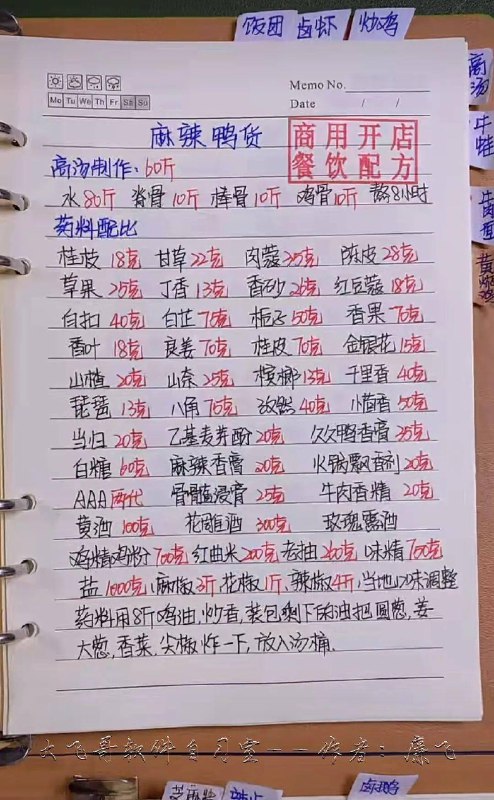 饭团 卤虾 炒鸡
高汤
Memo No.
Mo Tu We Th Fr Sa Su
Date / /
麻辣鸭货
商用开店
餐饮配方
高汤制作:60斤
水80斤 脊骨10斤 棒骨10斤 鸡骨10斤 熬8小时
药料配比
桂皮18克 甘草22克 肉蔻35克 陈皮28克
草果25克 丁香13克 香砂26克 红豆蔻18克
白扣40克 白芷75克 栀子50克 香果76克
香叶18克 良姜70克 桂皮70克 金银花15克
山楂20克 山奈25克 槟榔13克 千里香40克
琵琶13克 八角75克 孜然40克 小茴香50克
当归20克 乙基麦芽酚20克 久久鸭香膏35克
白糖60克 麻辣香膏20克 火锅飘香剂20克
AAA两代 骨髓浸膏25克 牛肉香精20克
黄酒100克 花雕酒300克 玫瑰露酒
鸡精鸡粉700克 红曲米200克 老抽260克 味精700克
盐1000克,麻椒2斤,花椒1斤,辣椒4斤,当地口味调整
药料用8斤鸡油,炒香,装包剩下的油把圆葱,姜
大葱,香菜,尖椒炸一下,放入汤桶.
大飞哥软件自习室--作者:廉飞
卤鸡